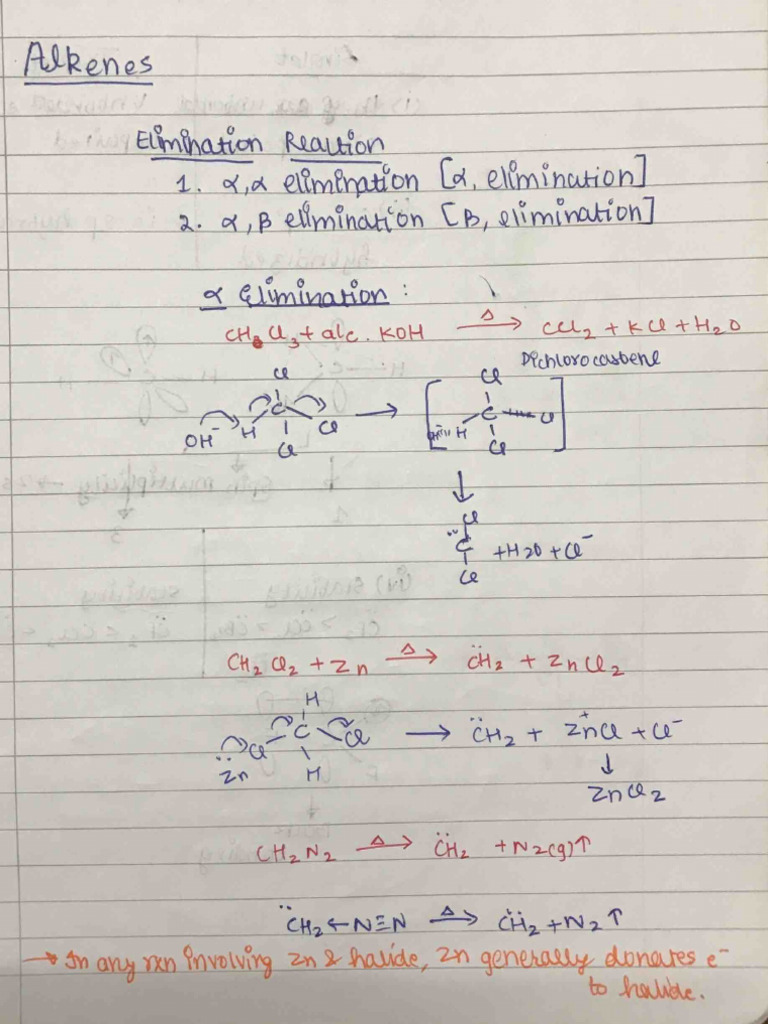 Alkenes
Elimination Reaction
1. α,α elimination [α, elimination]
2. α,β elimination [β, elimination]
α Elimination :
CHCl₃ + alc. KOH —Δ→ CCl₂ + KCl + H₂O
Dichlorocarbene
Cl Cl
OH⁻ H C Cl → [H C Cl]
Cl Cl
↓
Cl
:C + H2O + Cl⁻
Cl
CH₂Cl₂ + Zn —Δ→ C̈H₂ + ZnCl₂
H
Cl – C Cl → C̈H₂ + Zn⁺Cl + Cl⁻
Z̈n H ↓
ZnCl₂
CH₂N₂ —Δ→ C̈H₂ + N₂(g)↑
C̈H₂←N≡N —Δ→ C̈H₂ + N₂↑
→ In any rxn involving Zn & halide, Zn generally donates e⁻
to halide.